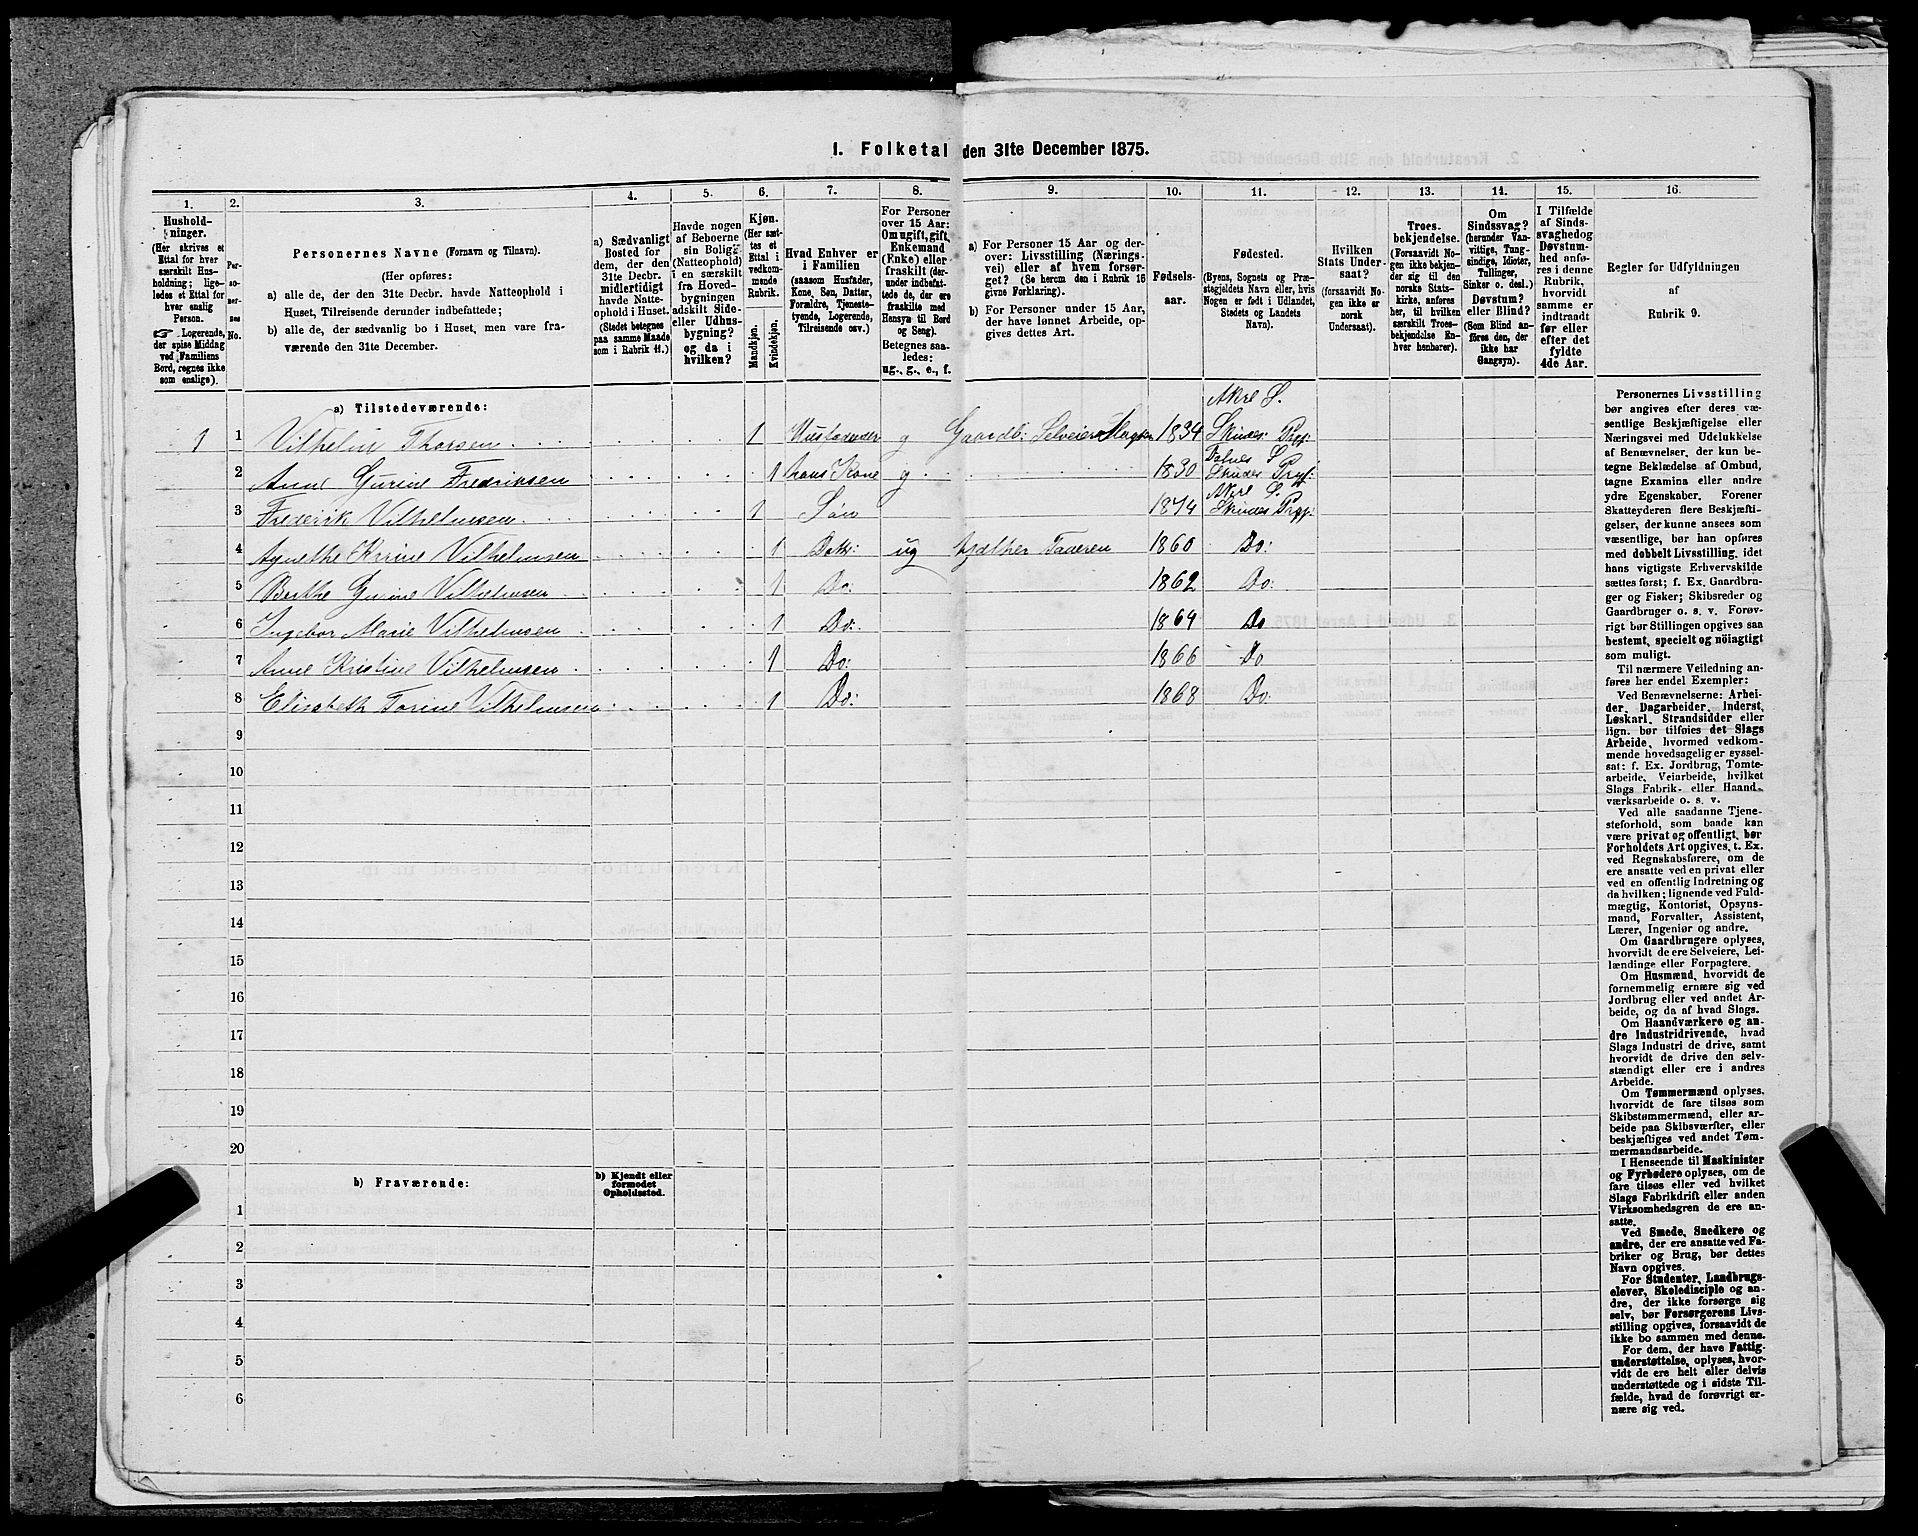 1. Folketal den 31te December 1875.
1. 2. 3. 4. 5. 6. 7. 8. 9. 10. 11. 12. 13. 14. 15. 16.
Hushold-
ninger.
(Her skrives et
Ettal for hver
særskilt Hus-
holdning; lige-
ledes et Ettal for
hver enslig
Person.
☞ Logerende,
der spise Middag
ved Familiens
Bord, regnes ikke
som enslige).
Per-
so-
ner-
nes
No.
Personernes Navne (Fornavn og Tilnavn).
(Her opføres:
a) alle de, der den 31te Decbr. havde Natteophold i
Huset, Tilreisende derunder indbefattede;
b) alle de, der sædvanlig bo i Huset, men vare fra-
værende den 31te December.
a) Sædvanligt
Bosted for
dem, der den
31te Decbr.
midlertidigt
havde Natte-
ophold i Huset.
(Stedet betegnes
paa samme Maade
som i Rubrik 11.)
Havde nogen
af Beboerne
sin Bolig
(Natteophold)
i en særskilt
fra Hoved-
bygningen
adskilt Side-
eller Udhus-
bygning?
og da i
hvilken?
Kjøn.
(Her sæt-
tes et
Ettal i
vedkom-
mende
Rubrik.
Mandkjøn.
Kvindekjøn.
Hvad Enhver er
i Familien
(saasom Husfader,
Kone, Søn, Datter,
Forældre, Tjeneste-
tyende, Logerende,
Tilreisende osv.)
For Personer
over 15 Aar:
Om ugift, gift,
Enkemand
(Enke) eller
fraskilt (der-
under indbefat-
tede de, der ere
fraskilte med
Hensyn til Bord
og Seng).
Betegnes saa-
ledes:
ug., g., e., f.
a) For Personer 15 Aar og der-
over: Livsstilling (Nærings-
vei) eller af hvem forsør-
get? (Se herom den i Rubrik 16
givne Forklaring).
b) For Personer under 15 Aar,
der have lønnet Arbeide, op-
gives dettes Art.
Fødsels-
aar.
Fødested.
(Byens, Sognets og Præ-
stegjeldets Navn eller, hvis
Nogen er født i Udlandet,
Stedets og Landets
Navn).
Hvilken
Stats Under-
saat?
(forsaavidt No-
gen ikke er
norsk
Undersaat).
Troes-
bekjendelse.
(Forsaavidt No-
gen ikke bekjen-
der sig til den
norske Stats-
kirke, anføres
her, til hvilken
særskilt Troes-
bekjendelse En-
hver henhører).
Om
Sindssvag?
(herunder Van-
vittige, Tung-
sindige, Idioter,
Tullinger,
Sinker o. desl.)
Døvstum?
eller Blind?
(Som Blind an-
føres den, der
ikke har
Gangsyn).
I Tilfælde
af Sinds-
svaghed og
Døvstum-
hed anfø-
res i denne
Rubrik,
hvorvidt
samme er
indtraadt
før eller
efter det
fyldte
4de Aar.
Regler for Udfyldningen
af
Rubrik 9.
a) Tilstedeværende:
Akre S.
1 1 Vilhelm Thorsen 1 Husfader g Gaardb: Selveier 1834 Skudes Prgj:
Falnes S.
2 Anne Gurine Fredriksen 1 hans Kone g 1830 Skudes Prgj:
Akre S.
3 Frederik Vilhelmsen 1 Søn 1874 Skudes Prgj:
4 Agnethe Karine Vilhelmsen 1 Datr: ug hjælper Faderen 1860 Do:
5 Berthe Gurine Vilhelmsen 1 Do: 1862 Do:
6 Ingebor Marie Vilhelmsen 1 Do: 1864 Do
7 Anne Kristine Vilhelmsen 1 Do: 1866 Do
8 Elisabeth Torine Vilhelmsen 1 Do: 1868 Do:
9
10
11
12
13
14
15
16
17
18
19
20
b) Fraværende:
b) Kjendt eller
formodet
Opholdssted.
1
2
3
4
5
6
Personernes Livsstilling
bør angives efter deres væ-
sentlige Beskjæftigelse eller
Næringsvei med Udelukkelse
af Benævnelser, der kun be-
tegne Beklædelse af Ombud,
tagne Examina eller andre
ydre Egenskaber. Forener
Skatteyderen flere Beskjæfti-
gelser, der kunne ansees som
væsentlige, bør han opføres
med dobbelt Livsstilling, idet
hans vigtigste Erhvervskilde
sættes først; f. Ex. Gaardbru-
ger og Fisker; Skibsreder og
Gaardbruger o. s. v. Forøv-
rigt bør Stillingen opgives saa
bestemt, specielt og nøiagtigt
som muligt.
Til nærmere Veiledning an-
føres her endel Exempler:
Ved Benævnelserne: Arbei-
der, Dagarbeider, Inderst,
Løskarl, Strandsidder eller
lign. bør tilføies det Slags
Arbeide, hvormed vedkom-
mende hovedsagelig er syssel-
sat: f. Ex. Jordbrug, Tomte-
arbeide, Veiarbeide, hvilket
Slags Fabrik- eller Haand-
værksarbeide o. s. v.
Ved alle saadanne Tjene-
steforhold, som baade kan
være privat og offentligt, bør
Forholdets Art opgives, t. Ex.
ved Regnskabsførere, om de
ere ansatte ved en privat eller
ved en offentlig Indretning og
da hvilken; lignende ved Fuld-
mægtig, Kontorist, Opsyns-
mand, Forvalter, Assistent,
Lærer, Ingeniør og andre.
Om Gaardbrugere oplyses,
hvorvidt de ere Selveiere, Lei-
lændinge eller Forpagtere.
Om Husmænd, hvorvidt de
fornemmelig ernære sig ved
Jordbrug eller ved andet Ar-
beide, og da af hvad Slags.
Om Haandværkere og an-
dre Industridrivende, hvad
Slags Industri de drive, samt
hvorvidt de drive den selv-
stændigt eller ere i andres
Arbeide.
Om Tømmermænd oplyses,
hvorvidt de fare tilsøs som
Skibstømmermænd, eller ar-
beide paa Skibsværfter, eller
beskjæftiges ved andet Tøm-
mermandsarbeide.
I Henseende til Maskinister
og Fyrbødere oplyses, om de
fare tilsøs eller ved hvilket
Slags Fabrikdrift eller anden
Virksomhedsgren de ere an-
satte.
Ved Smede, Snedkere og
andre, der ere ansatte ved Fa-
briker og Brug, bør dettes
Navn opgives.
For Studenter, Landbrugs-
elever, Skoledisciple og an-
dre, der ikke forsørge sig
selv, bør Forsørgerens Livs-
stilling opgives, forsaavidt de
ikke bo sammen med denne.
For dem, der have Fattig-
understøttelse, oplyses, hvor-
vidt de ere helt eller delvis
understøttede og i sidste Til-
fælde, hvad de forøvrigt er-
nære sig ved.